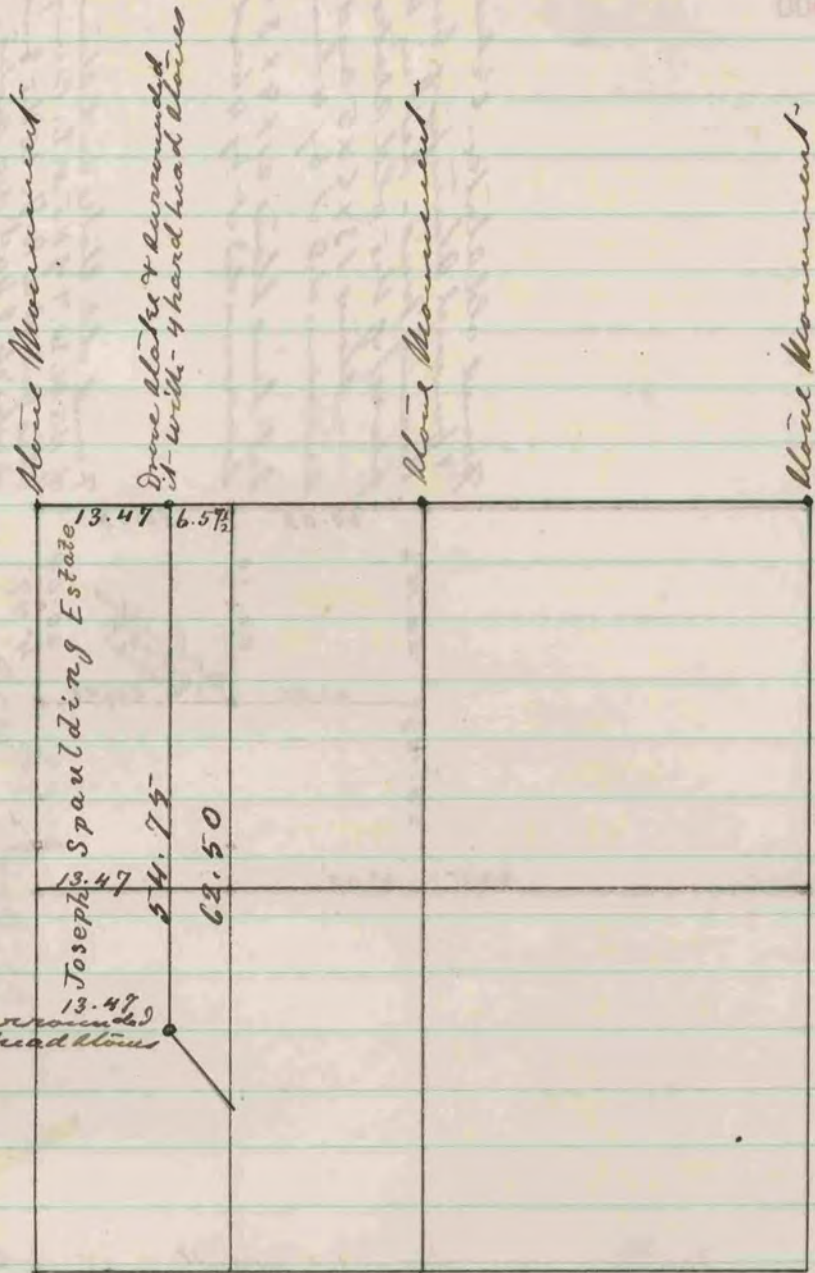 Stone Monument
Drove Stake & Surrounded
it with 4 hard head stones
Stone Monument
Stone Monument
13.47
6.57½
Joseph Spaulding Estate
54.75
62.50
13.47
13.47
head stones